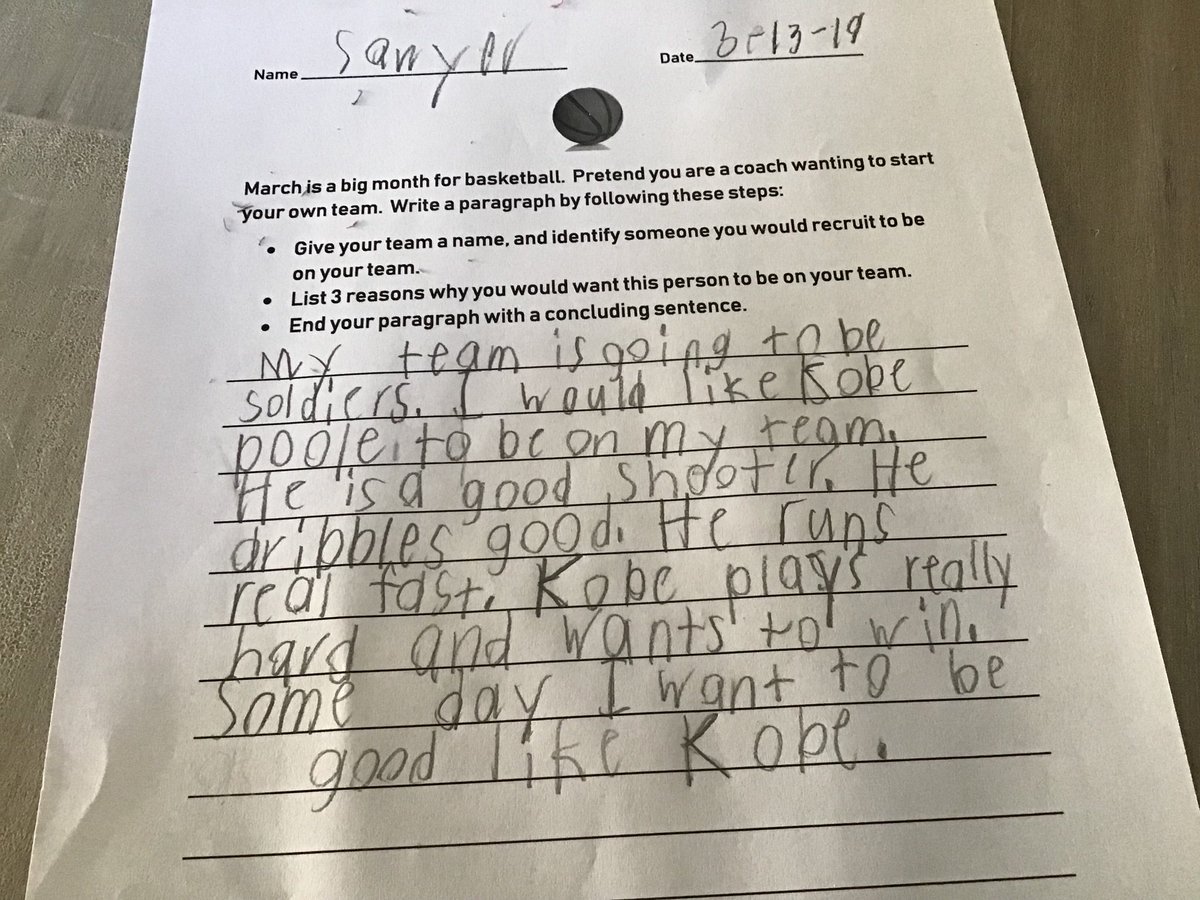 Name Sawyer Date 3-13-19
March is a big month for basketball. Pretend you are a coach wanting to start
your own team. Write a paragraph by following these steps:
• Give your team a name, and identify someone you would recruit to be
on your team.
• List 3 reasons why you would want this person to be on your team.
• End your paragraph with a concluding sentence.
My team is going to be
soldiers. I would like Kobe
poole to be on my team.
He is a good shooter. He
dribbles good. He runs
real fast. Kobe plays really
hard and wants to win.
Some day I want to be
good like Kobe.